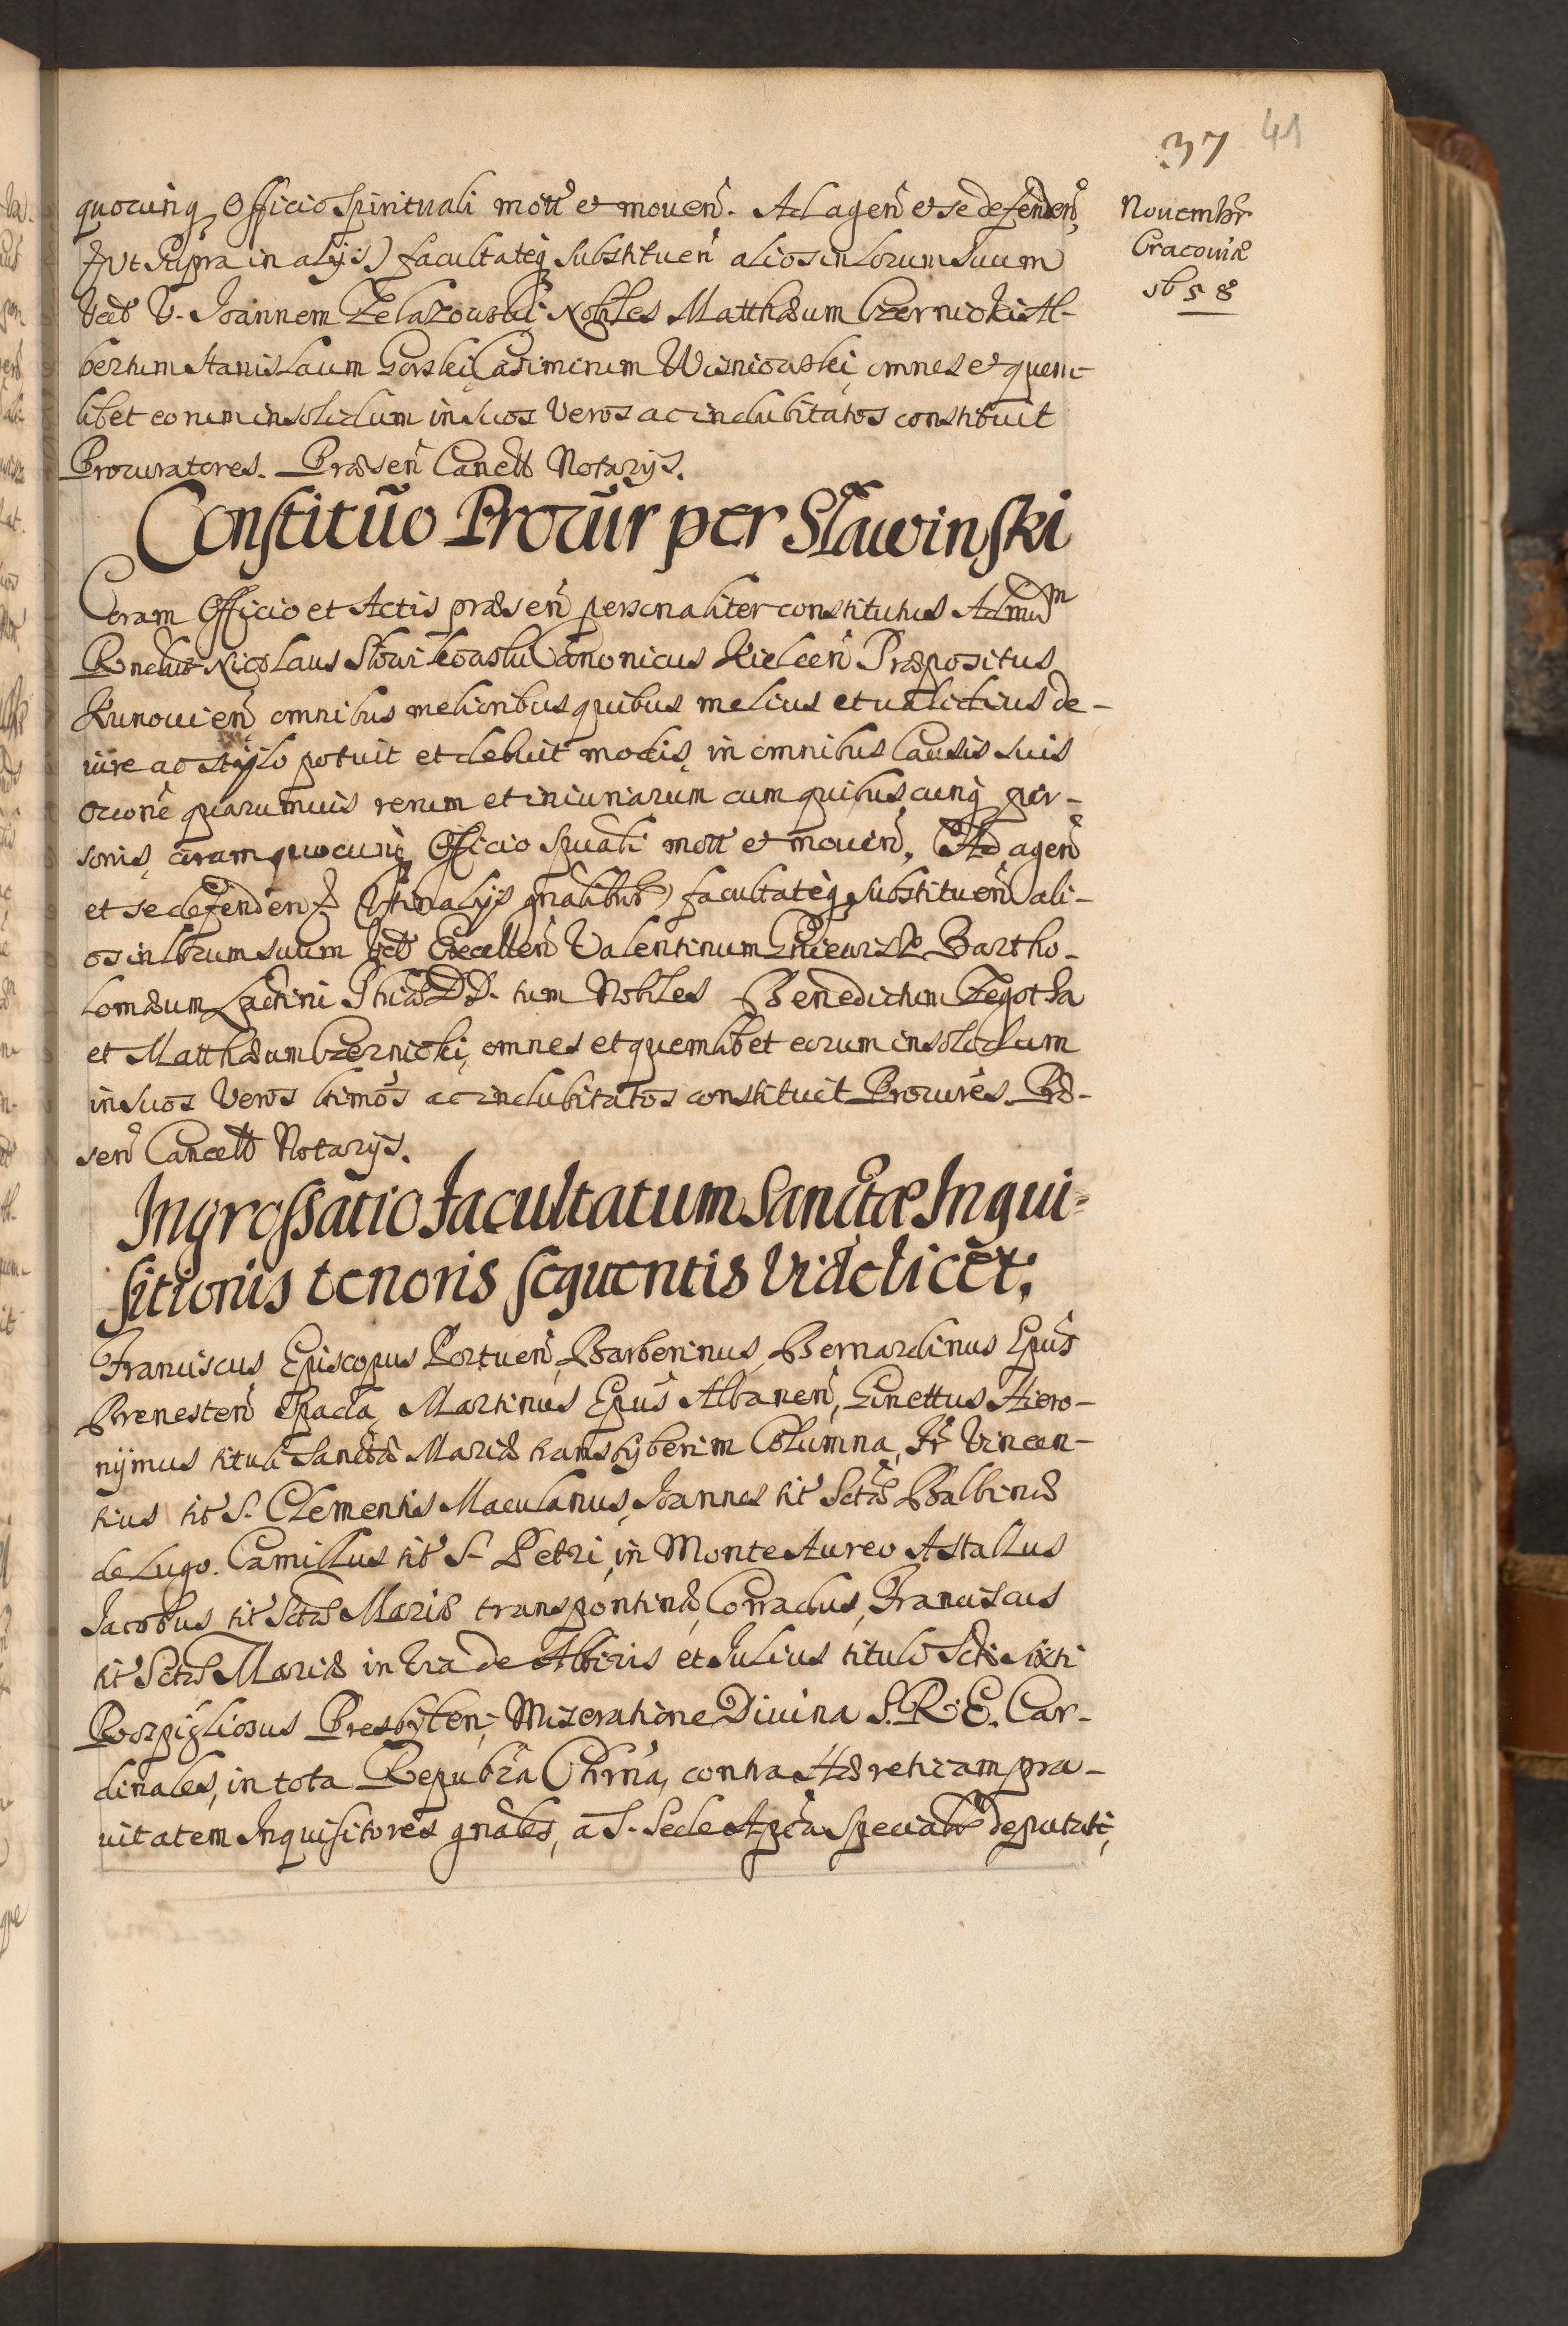 37 41
Novembr
Cracoviæ
1658
quocunq Officio Spirituali mott et mouen. Ad agen et se defenden
ut supra in alijs) facultateq substituen alios in locum suum
Vidt V. Joannem Zelazowski Nobiles Matthæum Czernicki Al-
bertum Stanislaum Gorski Casimirum Wisniowski, omnes et quem-
libet eorum in solidum in suos veros ac indubitatos constituit
Procuratores. Præsen Cancell Notarijs.
Constituo Procur per Sławinski
Coram Officio et Actis præsen personaliter constitutus Admm
Rndus Nicolaus Canonicus Kielcen Præpositus
Kunovien omnibus melioribus quibus melius et validius de-
iure ac stylo potuit et debuit modis, in omnibus Causis suis
occone quarumuis rerum et iniuriarum cum quibuscunq per-
sonis, coram quocunq Officio spuali mott et mouen. Ad agen
et se defenden (Ut in alijs gnalibus) facultateq substituen ali-
os in locum suum Vidt Excellen Valentinum Bartho-
lomæum DD. tum Nobiles Benedictum Zegotha
et Matthæum Czernicki, omnes et quemlibet eorum in solidum
in suos veros ltimos ac indubitatos constituit Procures. Præ-
sen Cancell Notarijs.
Ingrossatio Facultatum Sanctæ Inqui-
sitionis tenoris sequentis videlicet.
Franciscus Episcopus Portuen, Barberinus, Bernardinus Epus
Prenesten Spada, Martinus Epus Albanen, Ginettus Hiero-
nijmus tituli Sanctæ Mariæ transtyberim Columna, Fr Vincen-
tius tit S. Clementis Maculanus, Joannes tit Sctæ Balbinæ
de Lugo. Camillus tit S. Petri in Monte Aureo Astallus
Jacobus tit Sctæ Mariæ transpontinæ, Corradus, Franciscus
tit Sctæ Mariæ in Via de Albicis et Julius tituli Scti Sixti
Rospigliosus Presbyteri, Miseratione Diuina S. R. E. Car-
dinales, in tota Republca Chrna, contra Hæreticam pra-
uitatem Inquisitores gnales, a S. Sede Apca specialr deputati,